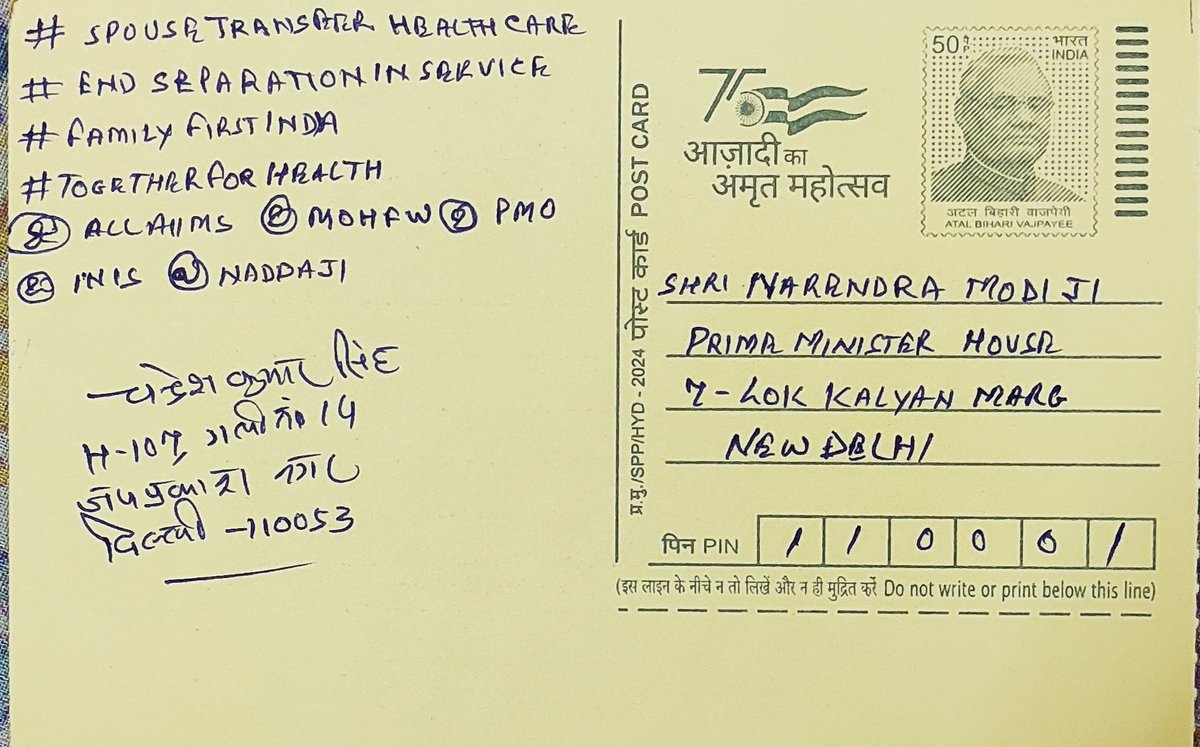 # SPOUSE TRANSFER HEALTH CARE
# END SEPARATION IN SERVICE
# FAMILY FIRST INDA
# TOGETHER FOR HEALTH
@ ALLAIIMS @ MOHFW @ PMO
@ INIS @ NADDAJI
चन्द्रेश कुमार सिंह
H-107, गली नं 14
जयप्रकाश नगर
दिल्ली -110053
प्र.मु./SPP/HYD - 2024 पोस्ट कार्ड POST CARD
75
आज़ादी का
अमृत महोत्सव
50 पै
भारत
INDIA
अटल बिहारी वाजपेयी
ATAL BIHARI VAJPAYEE
SHRI NARENDRA MODI JI
PRIME MINISTER HOUSE
7 - LOK KALYAN MARG
NEW DELHI
पिन PIN 1 1 0 0 0 1
(इस लाइन के नीचे न तो लिखें और न ही मुद्रित करें Do not write or print below this line)